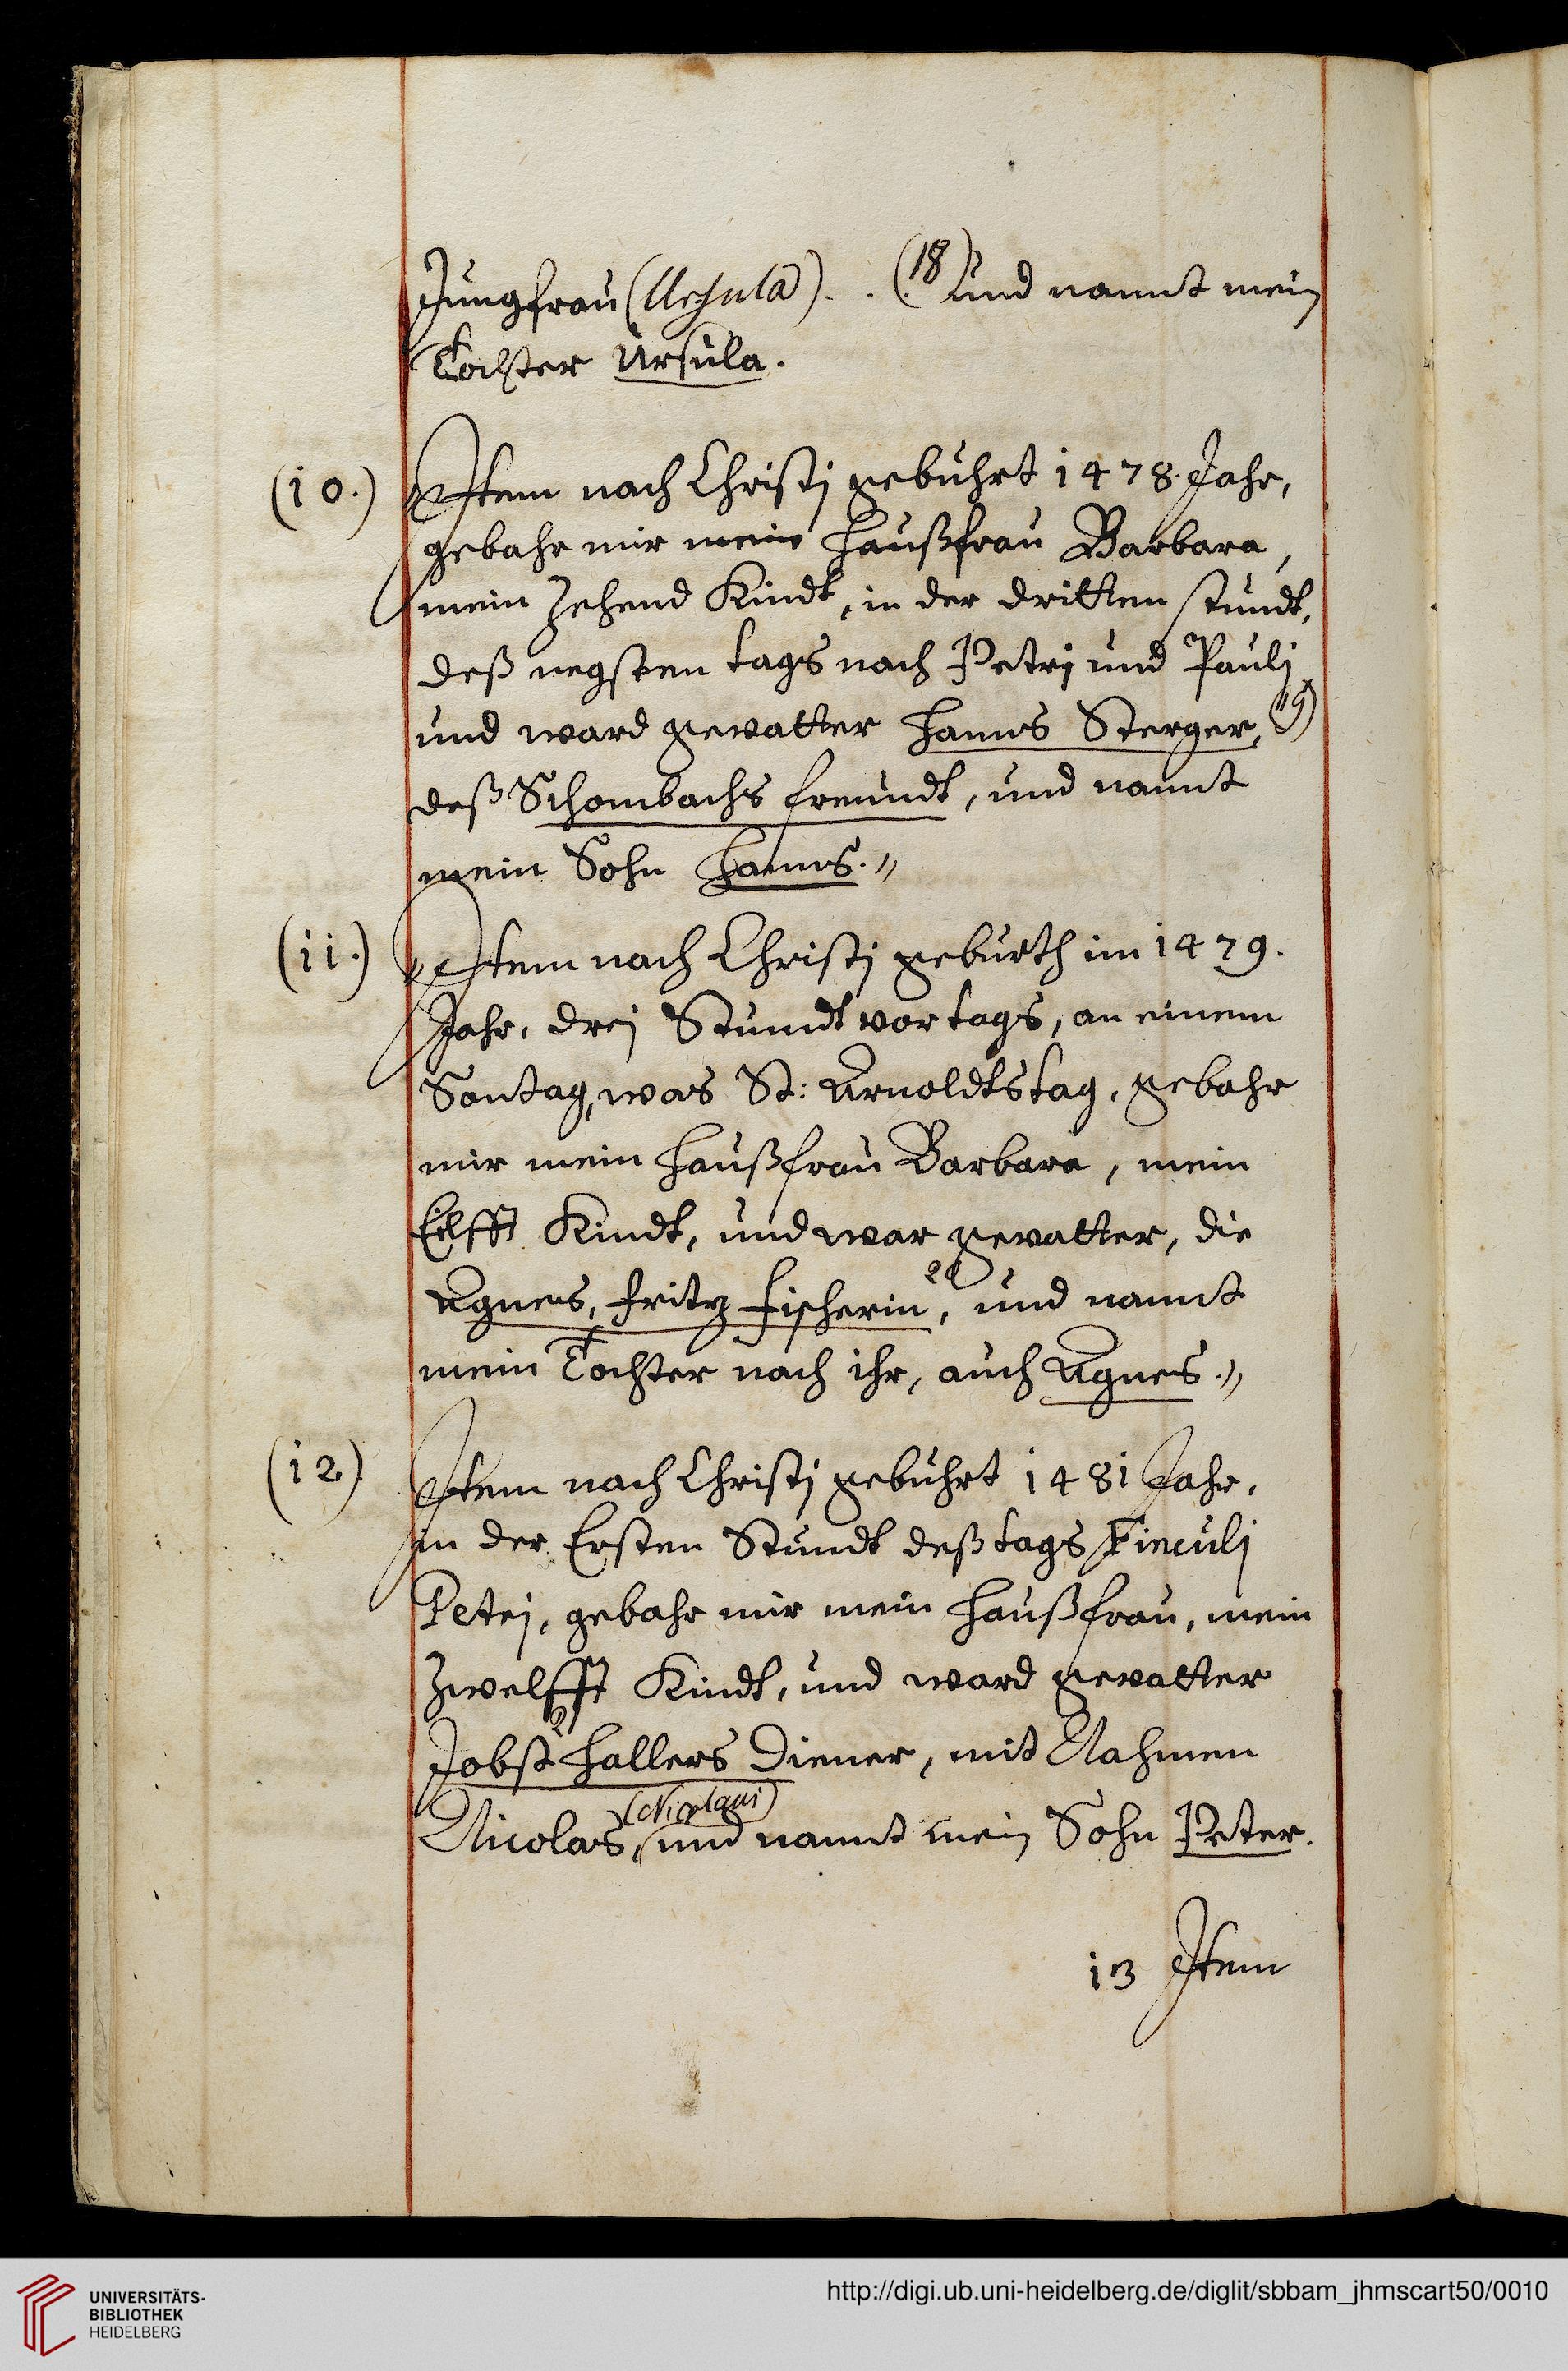 Jungfrau (Ursula) . . (18) und nannt mein
Tochter Ursula.
(10.) Item nach Christj gebuhrt 1478. Jahr,
gebahr mir mein Haußfrau Barbara,
mein zehend Kindt, in der dritten stundt,
deß negsten tags nach Petrj und Paulj
und ward gevatter Hanns Sterger, 19)
deß Schombachs freundt, und nannt
mein Sohn Hanns.
(11.) Item nach Christj geburth im 1479.
Jahr, drej Stundt vor tags, an einem
Sontag, was St: Arnoldtstag, gebahr
mir mein Haußfrau Barbara, mein
Eilfft Kindt, und war gevatter, die
Agnes, Fritz Fischerin 20, und nannt
mein Tochter nach ihr, auch Agnes.
(12) Item nach Christj gebuhrt 1481 Jahr,
in der Ersten Stundt deß tags Finculj
Petrj, gebahr mir mein Haußfrau, mein
Zwelfft Kindt, und ward gevatter
Jobst Hallers Diener, mit Nahmen
(Nicolaus)
Nicolas, und nannt mein Sohn Peter.
13 Item
UNIVERSITÄTS-
BIBLIOTHEK
HEIDELBERG
http://digi.ub.uni-heidelberg.de/diglit/sbbam_jhmscart50/0010